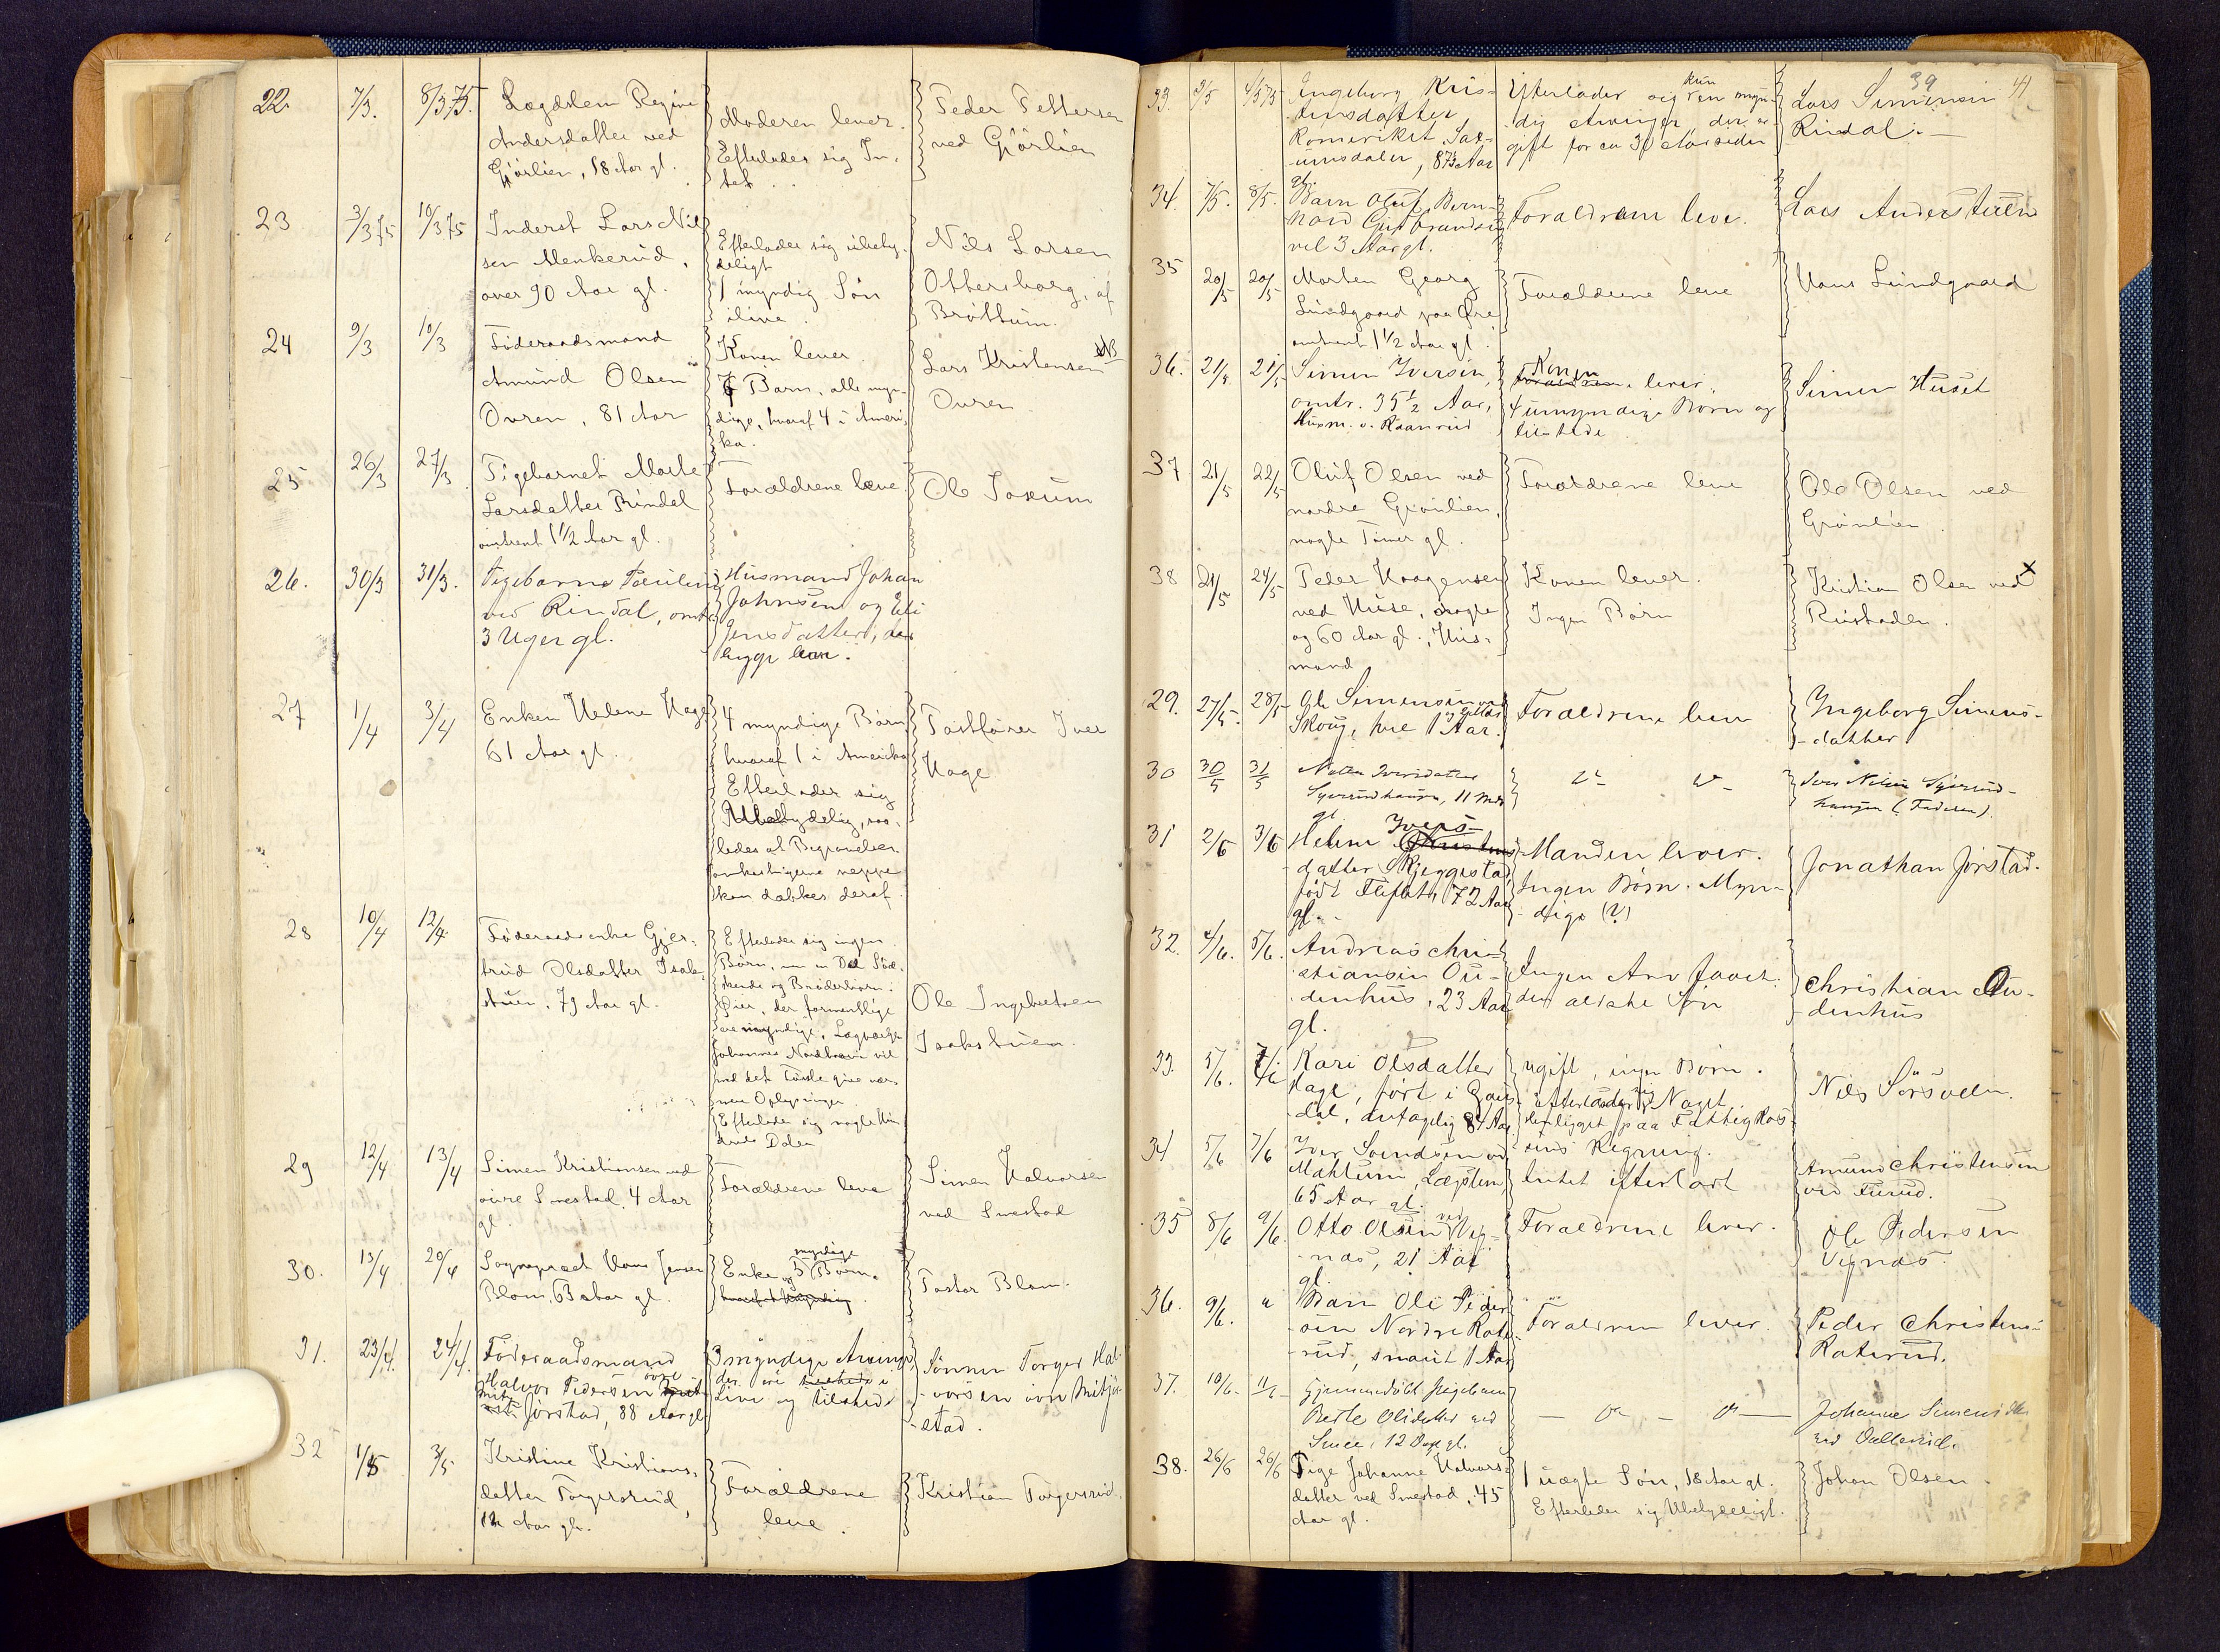 22. 7/3. 8/3 75. Lægdslem Regine
Andersdatter ved
Gjörlien, 18 Aar gl.
Moderen lever.
Efterlader sig In-
tet.
Peder Pettersen
ved Gjörlien
23 3/3 75 10/3 75 Inderst Lars Nil
sen Menkerud,
over 90 Aar gl.
Efterlader sig ubety-
deligt
1 myndig Søn
ilive.
Nils Larsen
Ottersborg, af
Brøttum.
24 9/3 10/3 Föderaadsmand
Amund Olsen
Ovren, 81 Aar
Konen lever.
Börn, alle myn-
dige, hvoraf 4 i Ameri-
ka.
Lars Kristensen NB
Ovren
25 26/3 27/3. Pigebarnet Marte
Larsdatter Rindal
omtrent 1 1/2 Aar gl.
Forældrene leve
Ole Joxum
26. 30/3 31/3. Pigebarn Pauline
ved Rindal, omtr.
3 Uger gl.
Husmand Johan
Johnsen og Eli
Jensdatter, der
begge leve.
27 1/4 3/4 Enken Helene Hage
61 Aar gl.
4 myndige Börn,
hvoraf 1 i Amerika
Efterlader sig
Ubetydelig, saa-
ledes at Begravelses-
omkostningerne neppe
kan dækkes deraf.
Postfører Iver
Hage
28 10/4 12/4. Föderaadsenke Gjer-
trud Olsdatter Isak-
stuen, 79 Aar gl.
Efterlader sig ingen
Börn, men en Del Söd-
skende og Broderbörn.
der formentlige
ere myndige. Lagværge
Johannes Nordhven vil
med det Første give nær-
mere Oplysninger.
Efterlader sig nogle Hun
drede Daler
Ole Ingebretsen
Isakstuen.
29 12/4 13/4 Simen Kristiansen ved
övre Smestad, 4 Aar
gl.
Forældrene leve
Simen Halvorsen
ved Smestad
30. 13/4 20/4 Sognepræst Hans Jensen
Blom, 63 Aar gl.
Enke og 5 myndige Børn.
Pastor Blom.
31. 23/4. 24/4. Föderaadsmand
Halvor Pedersen övre
Jörstad, 88 Aar gl
3 myndige Arvinger,
der ere i
Live og tilstede
Sönnen Torger Hal-
vorsen övre Mitjör-
stad.
32 1/5 3/5 Kristine Kristians-
datter Torgersrud,
12 Aar gl.
Forældrene
leve.
Kristian Torgersrud.
39
33. 3/5 4/5 75 Ingeborg Kris-
tensdatter
Romeriket Sax-
umsdalen, 87 1/2 Aar
gl
Efterlader sig kun en myn-
dig Arving, der er
gift for ca 30 Aar siden
Lars Simensen
Rindal.
34. 7/5. 8/5. Barn Oluf Bern-
hard Gulbrandsen
vel 3 Aar gl.
Forældrene leve.
Lars Anderstuen
35 20/5 20/5 Morten Georg
Lundgaard paa Øre
omtrent 1 1/2 Aar gl.
Forældrene leve
Hans Lundgaard
36. 21/5 21/5 Simen Iversen,
omtr. 35 1/2 Aar,
Husm. v. Raanrud
Konen lever.
4 umyndige Børn og
tilstede.
Simen Huset
37 21/5 22/5 Oluf Olsen ved
nordre Grönlien,
nogle Timer gl.
Forældrene leve
Ole Olsen ved
Grönlien.
38 21/5 24/5 Peder Haagensen
ved Huse, nogle
og 60 Aar gl., Hus-
mand
Konen lever.
Ingen Börn
Kristian Olsen ved x
Rustaden.
29. 27/5. 28/5 Ole Simensen ved
Skoug, 1 Aar.
Forældrene leve
Ingeborg Simens-
datter
30 30/5 31/5 Iversdatter
11 Mdr
gl.
Do Do
Iver Nilsen
haugen (Faderen).
31 2/6 3/6 Helene Ivers-
datter Skjeggestad,
født Fliflet, 72 Aar
gl.
Manden lever.
Ingen Børn. Myn-
dige (?)
Jonathan Jørstad.
32. 4/6. 5/6. Andreas Chri-
stiansen Ou-
denhus, 23 Aar
gl.
Ingen Arv
den ældste Søn
Christian Au-
denhus
33. 5/6. 7/6 Kari Olsdatter
Hage, født i Gaus-
dal, antagelig 84 Aar
ugift, ingen Børn.
efterlader sig Noget
henligget paa Fattigkas-
sens Regning.
Nils Sørsveen.
34 5/6 7/6 Iver Svendsen ved
Mahlum, Lægslem,
65 Aar gl.
Intet efterladt
Amund Christensen
ved Furud.
35 8/6 9/6. Otto Olsen ved Vig-
næs, 21 Aar
gl.
Forældrene lever.
Ole Pedersen
Vignæs.
36. 9/6. " Barn Ole Peder-
sen Nordre Rote-
rud, snaut 1 Aar
Forældrene lever.
Peder Christens:
Roterud.
37. 10/6 11/6 Hjemmedöbt Pigebarn
Berte Olsdatter ved
Smee, 12 Dage gl.
— Do — Do —
Johanne Simensdtr
ved Ballerud.
38. 26/6 26/6 Pige Johanne Halvors-
datter ved Smestad, 45
Aar gl.
1 uægte Søn, 18 Aar gl.
Efterlader sig Ubetydeligt.
Johan Olsen